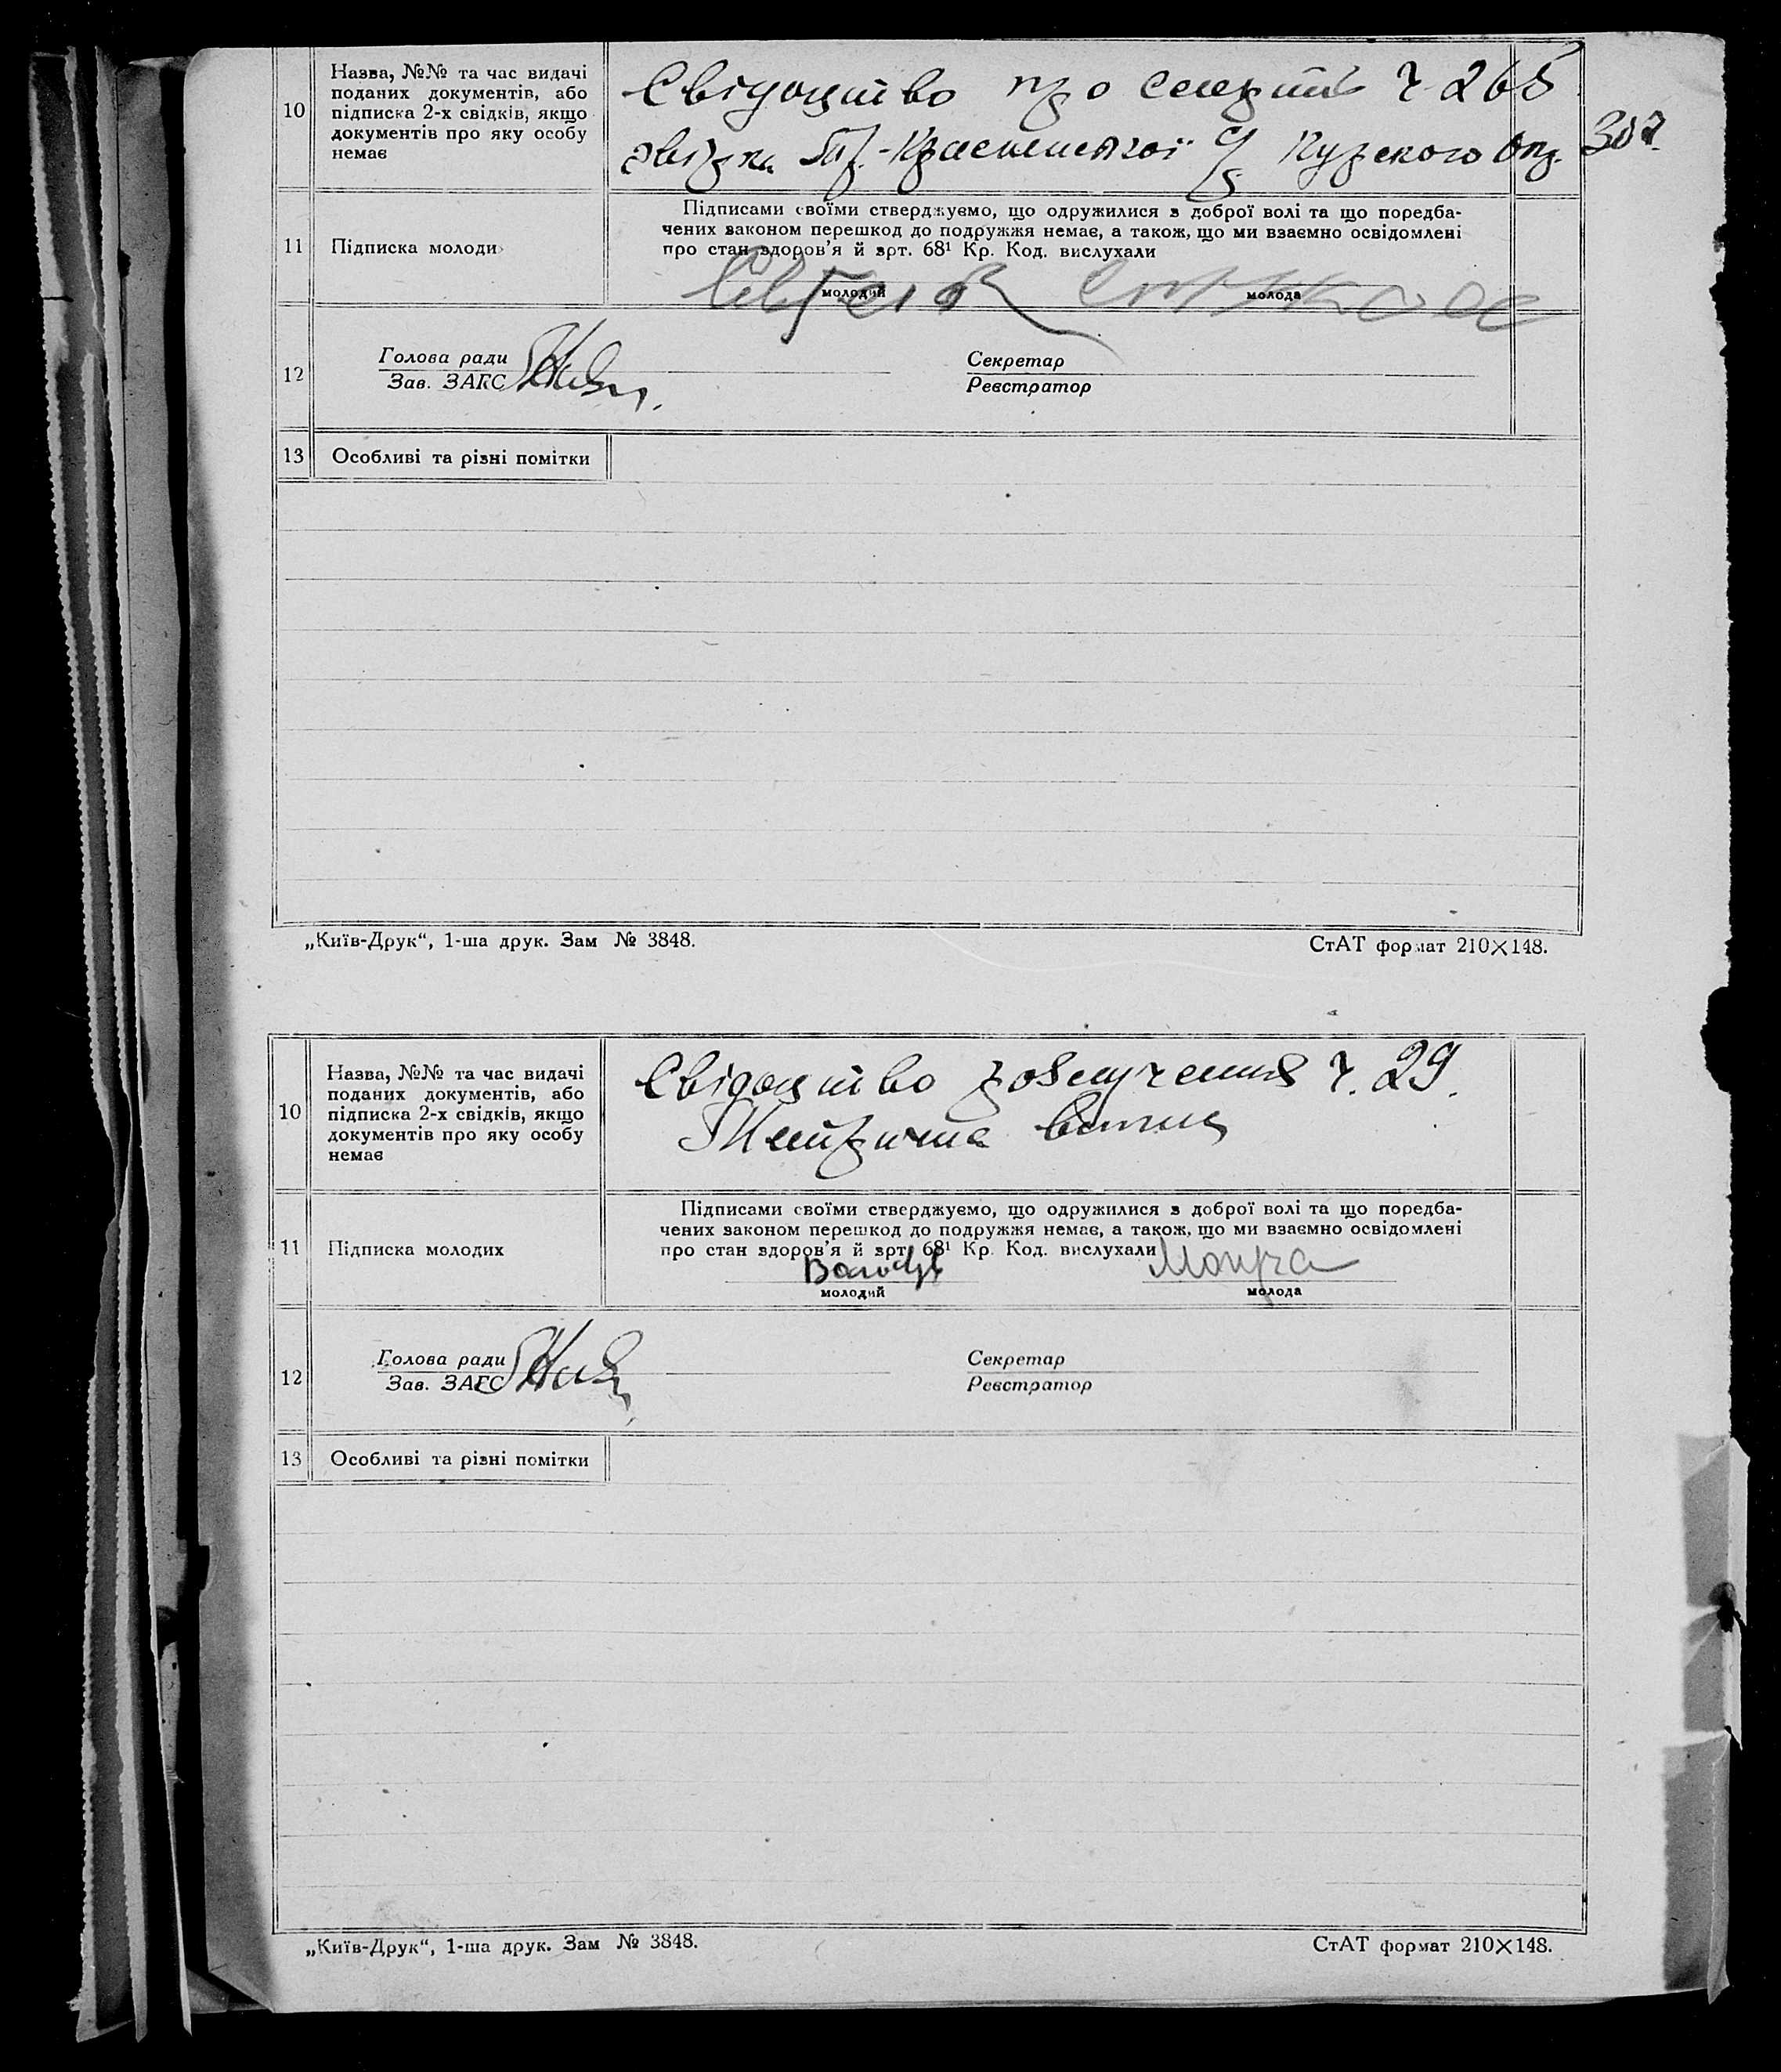 10
Назва, №№ та час видачі
поданих документів, або
підписка 2-х свідків, якщо
документів про яку особу
немає
Свідоцтво про смерть ч 265
307
11
Підписка молоди
Підписами своїми стверджуємо, що одружилися з доброї волі та що поредба-
чених законом перешкод до подружжя немає, а також, що ми взаємно освідомлені
про стан здоров'я й арт. 68¹ Кр. Код. вислухали
молодий
молода
12
Голова ради
Зав. ЗАГС
Секретар
Реєстратор
13
Особливі та різні помітки
„Київ-Друк“, 1-ша друк. Зам № 3848.
СтАТ формат 210×148.
10
Назва, №№ та час видачі
поданих документів, або
підписка 2-х свідків, якщо
документів про яку особу
немає
Свідоцтво розлучення ч. 29.
Метрична
11
Підписка молодих
Підписами своїми стверджуємо, що одружилися з доброї волі та що поредба-
чених законом перешкод до подружжя немає, а також, що ми взаємно освідомлені
про стан здоров'я й арт. 68¹ Кр. Код. вислухали
молодий
молода
12
Голова ради
Зав. ЗАГС
Секретар
Реєстратор
13
Особливі та різні помітки
„Київ-Друк“, 1-ша друк. Зам № 3848.
СтАТ формат 210×148.